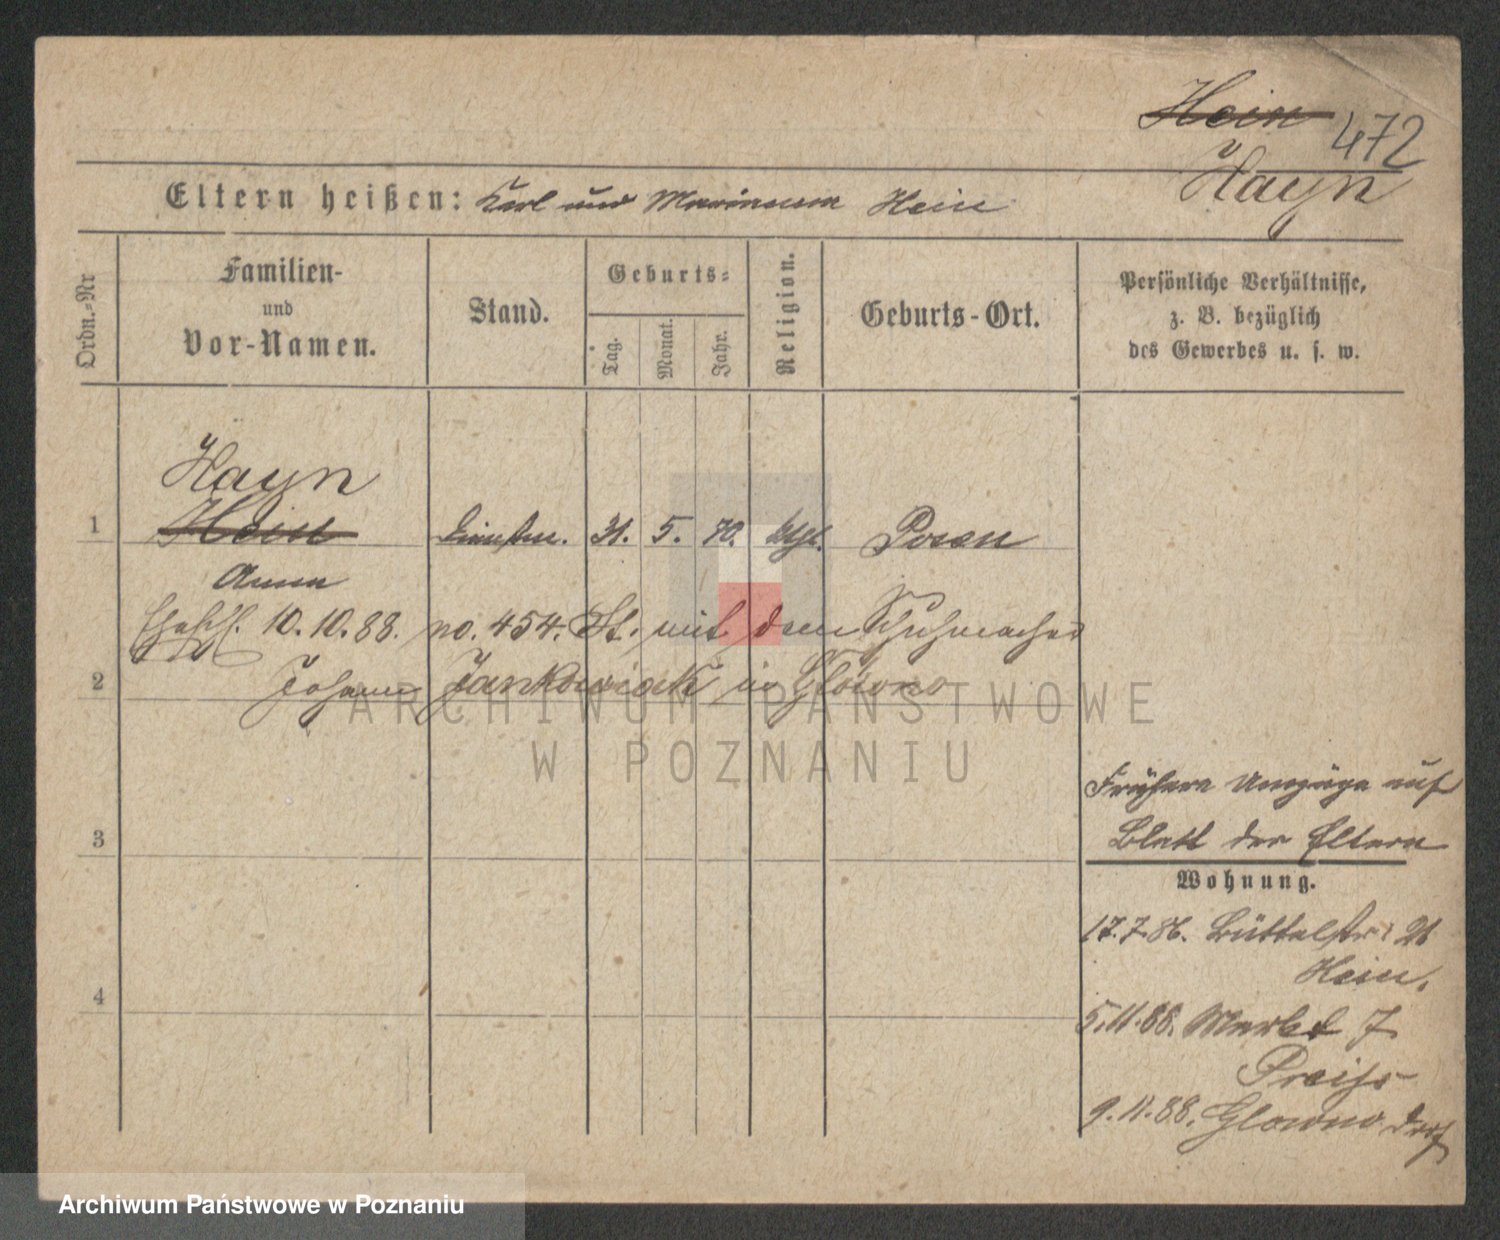 Hein
472
Hayn
Eltern heißen: Karl und Marianna Hein
Ordn.-Nr
Familien-
und
Vor-Namen.
Stand.
Geburts-
Tag.
Monat.
Jahr.
Religion.
Geburts-Ort.
Persönliche Verhältnisse,
z. B. bezüglich
des Gewerbes u. s. w.
Hayn
1 Hein 31. 5. 70. ktgl. Posen
Anna
10.10.88. no. 454. St. mit dem Schuhmacher
2 Johann Jankowiak in Glowno
ARCHIWUM PAŃSTWOWE
W POZNANIU
3
4
Frühere Umzüge auf
Blatt der Eltern
Wohnung.
17.7.86. Büttelstr. 21
Hein.
5.11.88. Markt 7
Preiss
9.11.88. Glowno Dorf
Archiwum Państwowe w Poznaniu